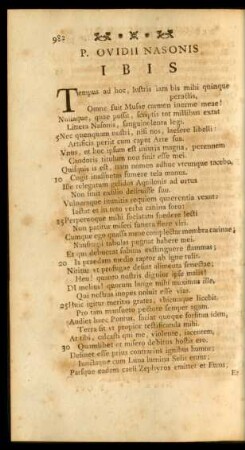 982
P. OVIDII NASONIS
IBIS
Tempus ad hoc, lustris iam bis mihi quinque
peractis,
Omne fuit Musae carmen inerme meae!
Nullaque, quae possit, scriptis tot millibus extat
Littera Nasonis, sanguinolenta legi.
5 Nec quenquam nostri, nisi nos, laesere libelli:
Artificis periit cum caput Arte sua.
Vnus, et hoc ipsum est iniuria magna, perennem
Candoris titulum non sinit esse mei.
Quisquis is est, nam nomen adhuc utcunque tacebo,
10 Cogit inassuetas sumere tela manus.
Ille relegatum gelidos Aquilonis ad ortus
Non sinit exilio
Vulneraque immitis requiem quaerentia vexat;
Iactat et in toto verba foro:
25 Perpetuoque mihi sociatam foedere lecti
Non patitur miseri funera flere viri.
Cumque ego quassa meae complectar membra carinae,
Naufragii tabulas pugnat habere mei.
Et qui debuerat subitas extinguere flammas;
20 In praedam medio raptor ab igne ruit.
Nititur ut profugae desint alimenta senectae;
Heu! quanto est nostris dignior ipse malis!
Di melius! quorum longe mihi maximus ille,
Qui nostras inopes noluit esse vias.
25 Huic igitur meritas grates, ubicunque licebit,
Pro tam mansueto pectore semper agam.
Audiet hoc Pontus, faciet quoque forsitan idem,
Terra sit ut propior testificanda mihi.
At tibi, calcasti qui me, violente, iacentem,
30 Quamlibet et misero debitus hostis ero.
Desinet esse prius contrarius ignibus humor;
Iunctaque cum Luna lumina Solis erunt;
Parsque eadem caeli Zephyros emittet et Euros;